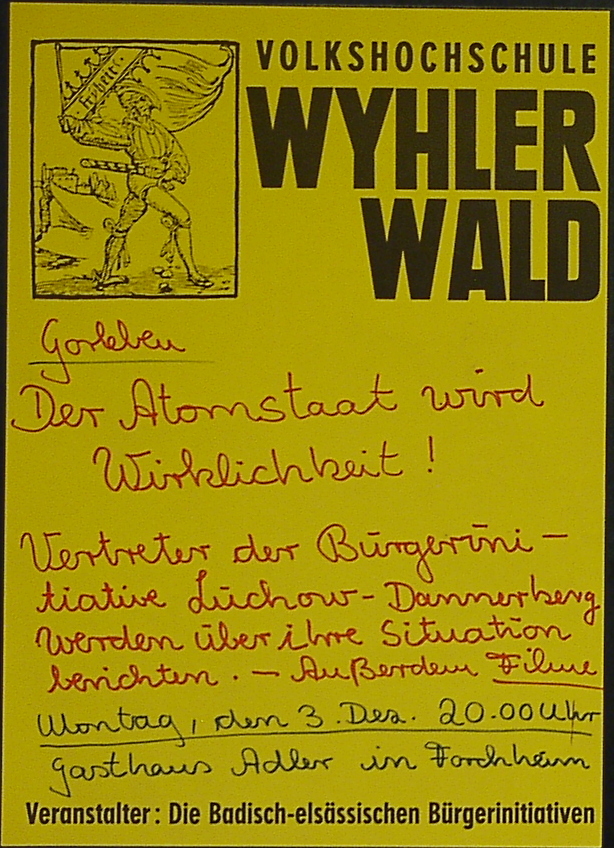 Freiheit
VOLKSHOCHSCHULE
WYHLER
WALD
Gorleben
Der Atomstaat wird
Wirklichkeit!
Vertreter der Bürgerini-
tiative Lüchow-Dannenberg
werden über ihre Situation
berichten. - Außerdem Filme
Montag, den 3. Dez. 20.00 Uhr
Gasthaus Adler in Forchheim
Veranstalter: Die Badisch-elsässischen Bürgerinitiativen